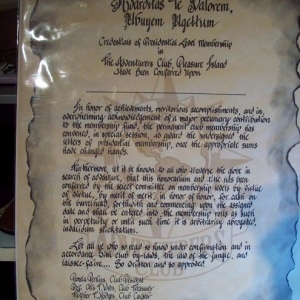 Awarditas Te Valorem,
Credentials of Presidential Level Membership
in
The Adventurers Club, Pleasure Island
Have Been Conferred Upon
In honor of achievements, meritorious accomplishments, and in
overwhelming acknowledgement of a major pecuniary contribution
to the membership fund, the permanent club membership has
convened, in special session, to award the undersigned the
letters of presidential membership, once the appropriate sums
have changed hands.
Furthermore, let it be known to all who traverse the globe in
search of adventure, that this honorarium and title has been
conferred by the select committee on membership levels by virtue
of virtue, by merit of merit, in honor of honor, for cash on
the barrelhead, forthwith and commencing upon the assigned
date and shall be entered into the membership rolls as such
in perpetuity or until such time it is arbitrarily abrogated,
Let all ye who so read so know under confirmation and in
accordance with club by-laws, the law of the jungle, and
laissez-faire... So written and so approved
Club Curator